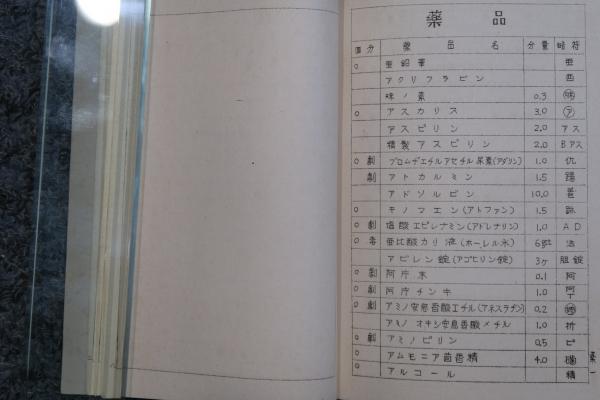 薬品
区分 薬品名 分量 略符
○ 亜鉛華 亜
アクリフラビン
味ノ素 0.3 味
○ アスカリス 3.0 ア
アスピリン 2.0 アス
精製アスピリン 2.0 Bアス
○ 劇 ブロムヂエチルアセチル尿素(アダリン) 1.0
劇 アトカルミン 1.5
アドソルビン 10.0
○ キノフエン(アトファン) 1.5
○ 劇 塩酸エピレナミン(アドレナリン) 1.0 AD
○ 毒 亜比酸カリ液(ホーレル水)
アビレン錠(アゴビリン錠) 3ヶ 胆錠
○ 劇 阿片末 0.1 阿
○ 劇 阿片チンキ 1.0
○ 劇 アミノ安息香酸エチル(アネスラヂン) 0.2
アミノオキシ安息香酸メチル 1.0
○ 劇 アミノピリン 0.5 ピ
○ アムモニア茴香精 4.0
○ アルコール 精